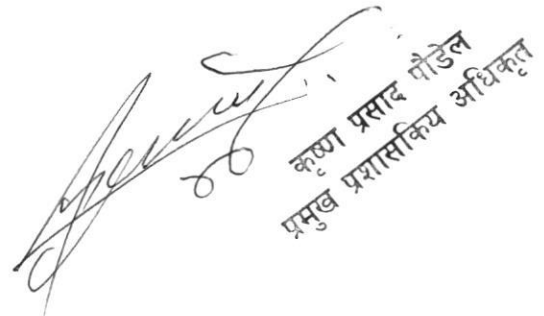 कृष्ण प्रसाद पौडेल
प्रमुख प्रशासकिय अधिकृत